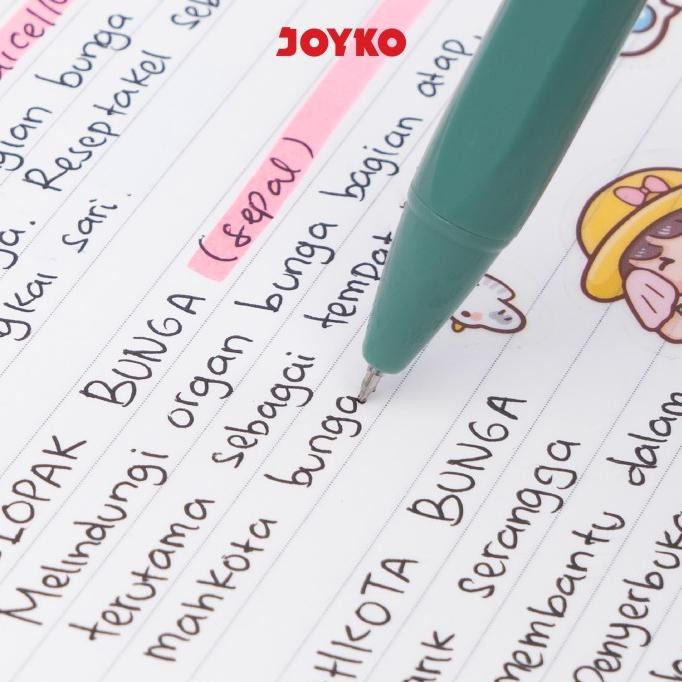 JOYKO
gian bunga
Reseptakel seb
gkai sari.
LOPAK BUNGA (sepal)
Melindungi organ bunga bagian atap,
terutama sebagai tempat
mahkota bunga
HKOTA BUNGA
arik serangga
membantu dalam
Penyerbuka